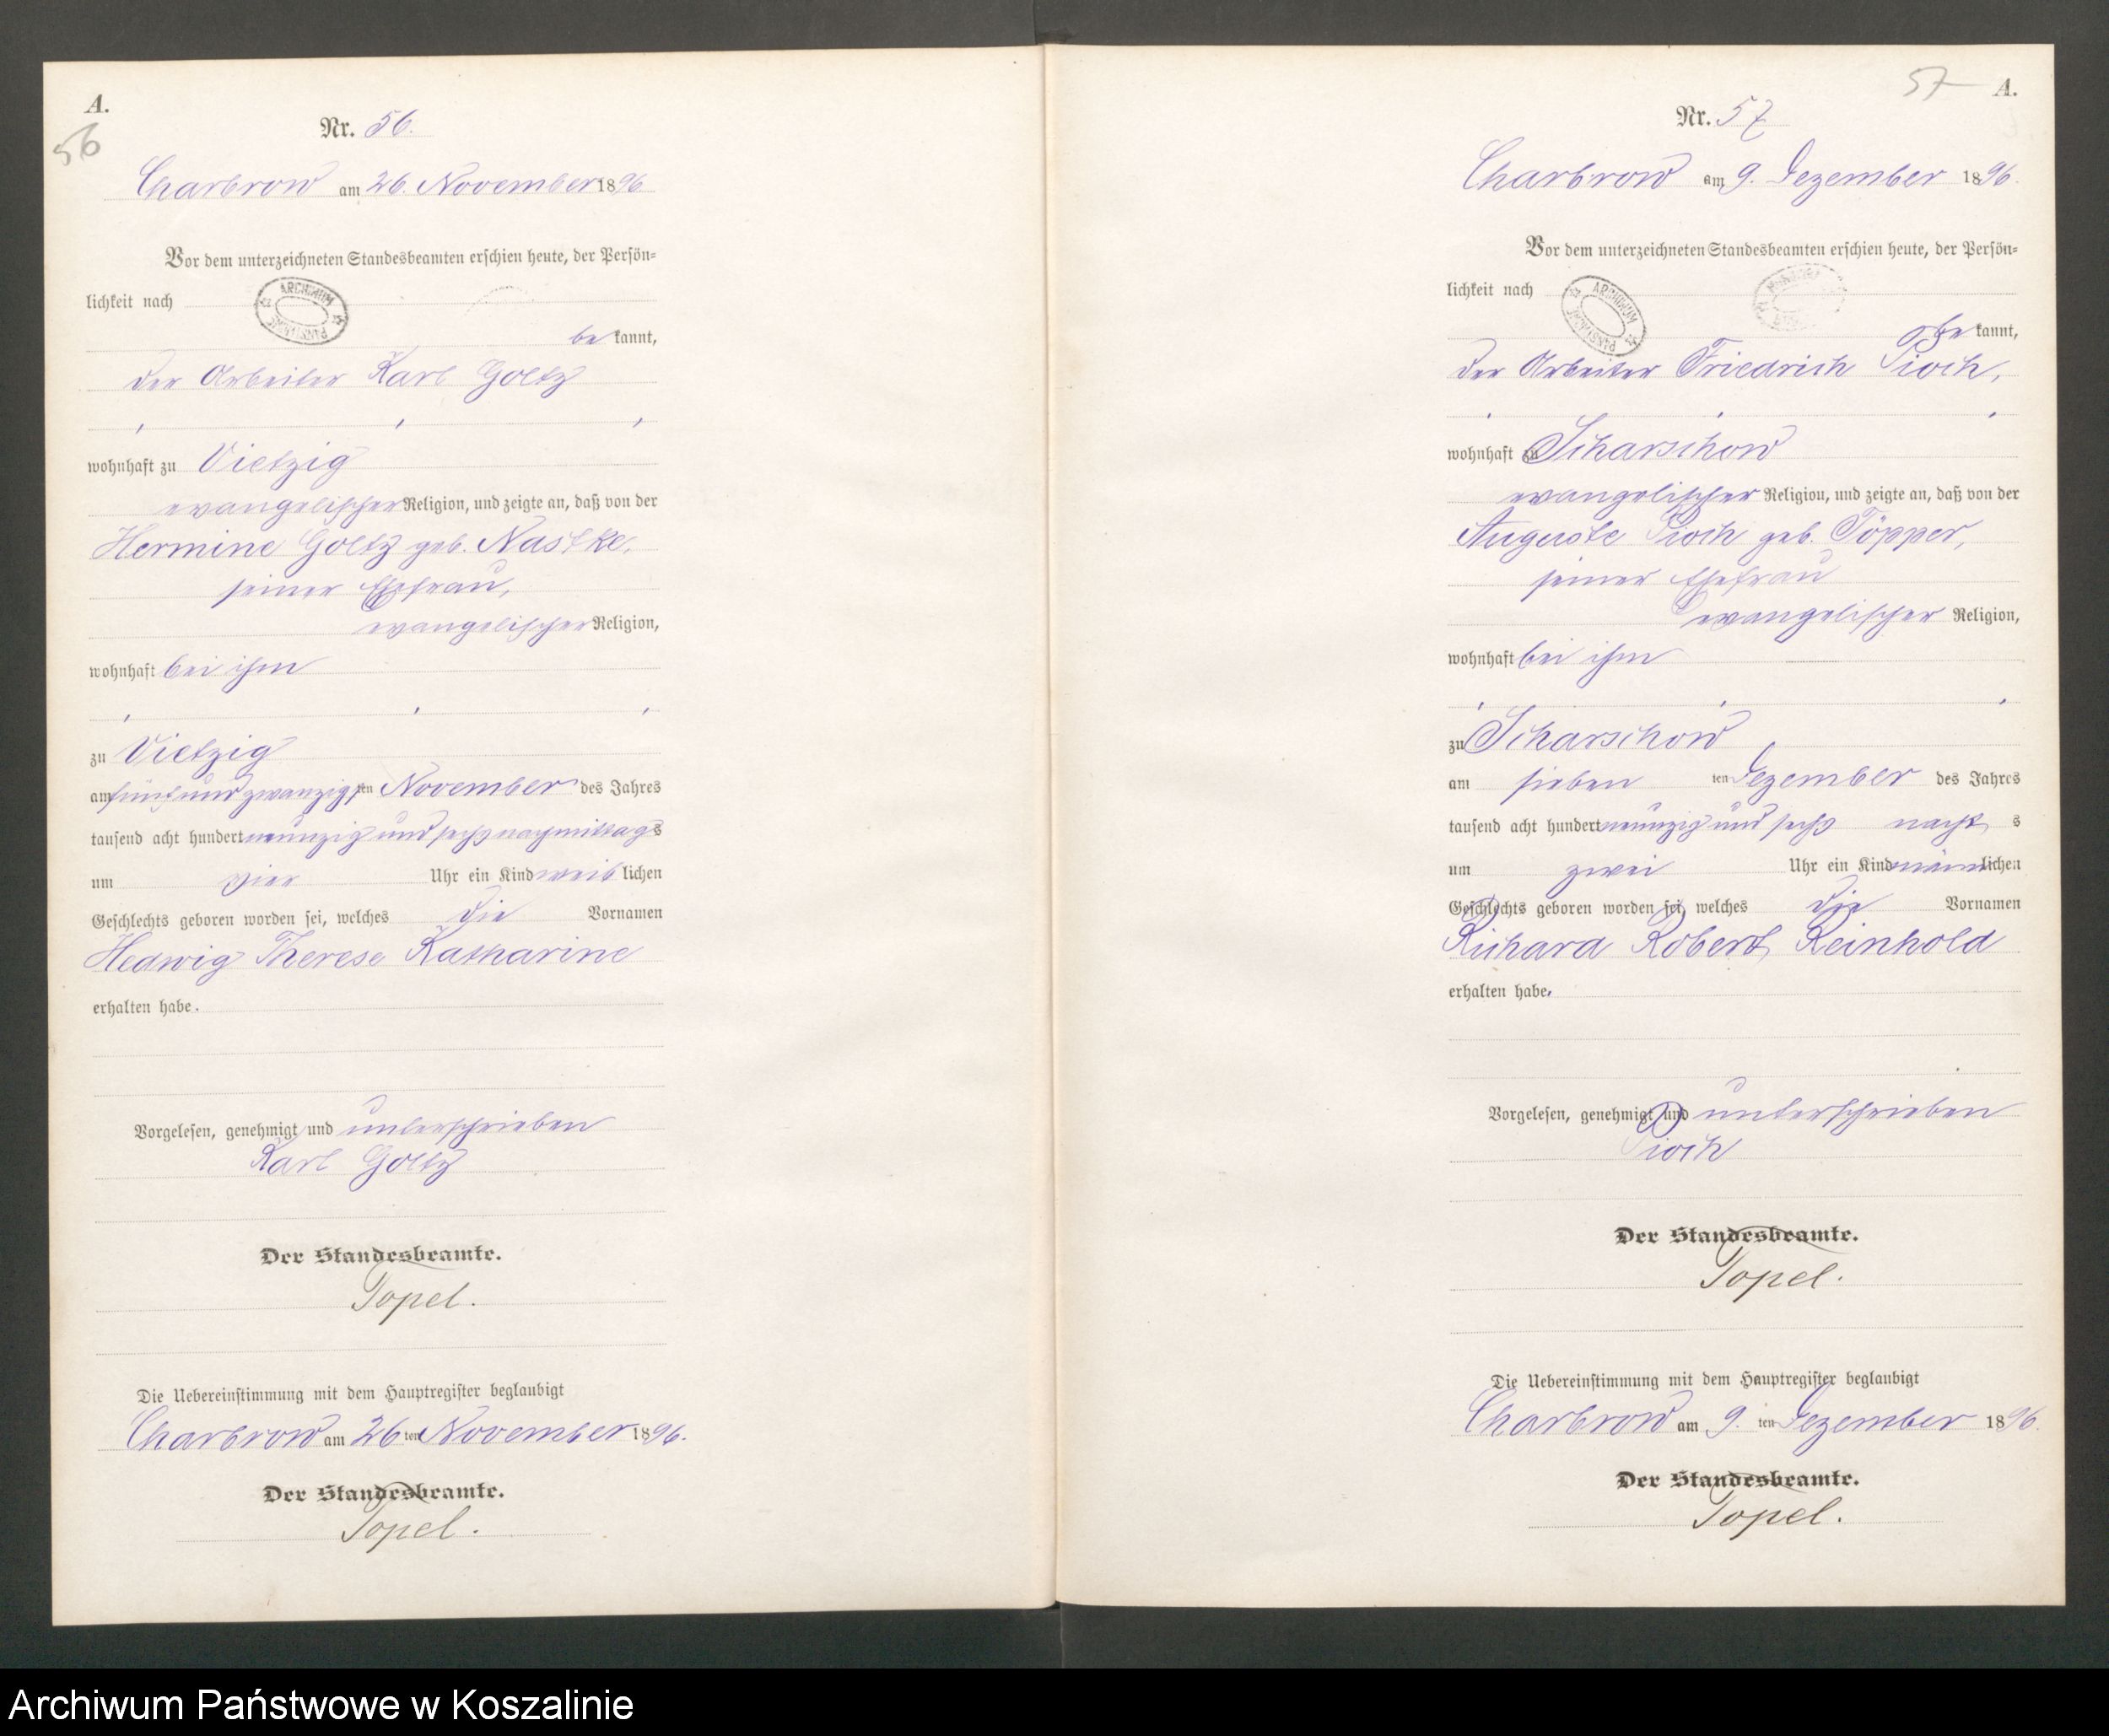 A.
56
Nr. 56.
Charbrow am 26. November 1896
Vor dem unterzeichneten Standesbeamten erschien heute, der Persön-
lichkeit nach
ARCHIWUM PAŃSTWOWE
be kannt,
der Arbeiter Karl Goltz
wohnhaft zu Vietzig
evangelischer Religion, und zeigte an, daß von der
Hermine Goltz geb. Nastke,
seiner Ehefrau,
evangelischer Religion,
wohnhaft bei ihm
zu Vietzig
am fünfundzwanzigsten November des Jahres
tausend acht hundert neunzig und sechs nachmittags
um vier Uhr ein Kind weiblichen
Geschlechts geboren worden sei, welches die Vornamen
Hedwig Therese Katharine
erhalten habe.
Vorgelesen, genehmigt und unterschrieben
Karl Goltz
Der Standesbeamte.
Topel.
Die Uebereinstimmung mit dem Hauptregister beglaubigt
Charbrow am 26 ten November 1896.
Der Standesbeamte.
Topel.
57 A.
Nr. 57
Charbrow am 9. Dezember 1896.
Vor dem unterzeichneten Standesbeamten erschien heute, der Persön-
lichkeit nach
ARCHIWUM PAŃSTWOWE
be kannt,
der Arbeiter Friedrich Pioch,
wohnhaft zu Scharschow
evangelischer Religion, und zeigte an, daß von der
Auguste Pioch geb. Töpper,
seiner Ehefrau
evangelischer Religion,
wohnhaft bei ihm
zu Scharschow
am sieben ten Dezember des Jahres
tausend acht hundert neunzig und sechs nachts
um zwei Uhr ein Kind männlichen
Geschlechts geboren worden sei, welches die Vornamen
Richard Robert Reinhold
erhalten habe.
Vorgelesen, genehmigt und unterschrieben
Pioch
Der Standesbeamte.
Topel.
Die Uebereinstimmung mit dem Hauptregister beglaubigt
Charbrow am 9. ten Dezember 1896.
Der Standesbeamte.
Topel.
Archiwum Państwowe w Koszalinie